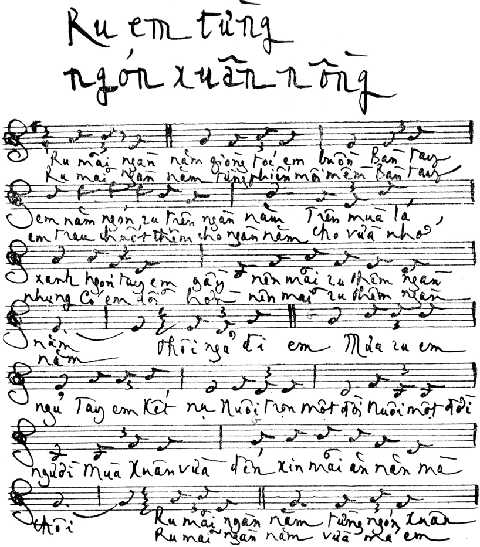 Ru em từng
ngón xuân nồng
Ru mãi ngàn năm giòng tóc em buồn Bàn tay
Ru mãi ngàn năm từng phiến môi mềm Bàn tay
em năm ngón ru trên ngàn năm Trên mùa lá
em trau chuốt thêm cho ngàn năm cho vừa nhớ
xanh ngón tay em gầy nên mãi ru thêm ngàn
nhưng có em dỗi hờn nên mãi ru thêm ngàn
năm Thôi ngủ đi em Mưa ru em
năm
ngủ Tay em kết nụ Nuôi trọn một đời Nuôi một đời
người Mùa xuân vừa đến xin mãi ăn năn mà
thôi Ru mãi ngàn năm từng ngón xuân
Ru mãi ngàn năm vừa má em